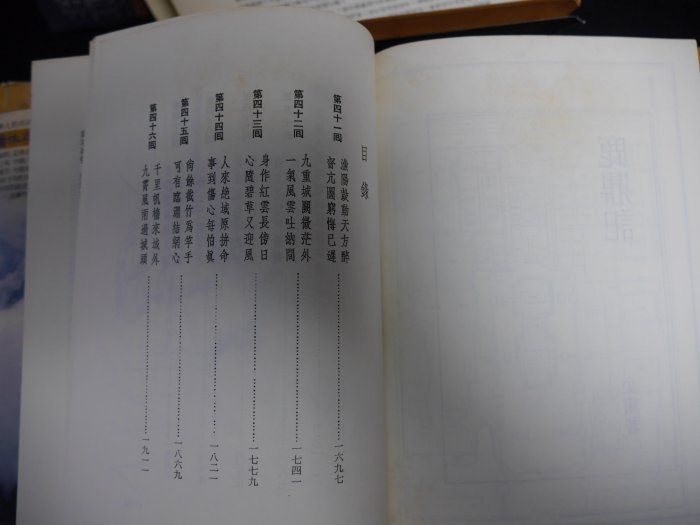 目錄
第四十一回
漁陽鼓動天方醉
督亢圖窮悔已遲
一六九七
第四十二回
九重城闕微茫外
一氣風雲吐納間
一七四一
第四十三回
身作紅雲長傍日
心隨碧草又迎風
一七七九
第四十四回
人來絕域原拚命
事到傷心每怕眞
一八二一
第四十五回
尙餘截竹爲竿手
可有臨淵結網心
一八六九
第四十六回
千里帆檣來域外
九霄風雨過城頭
一九一一